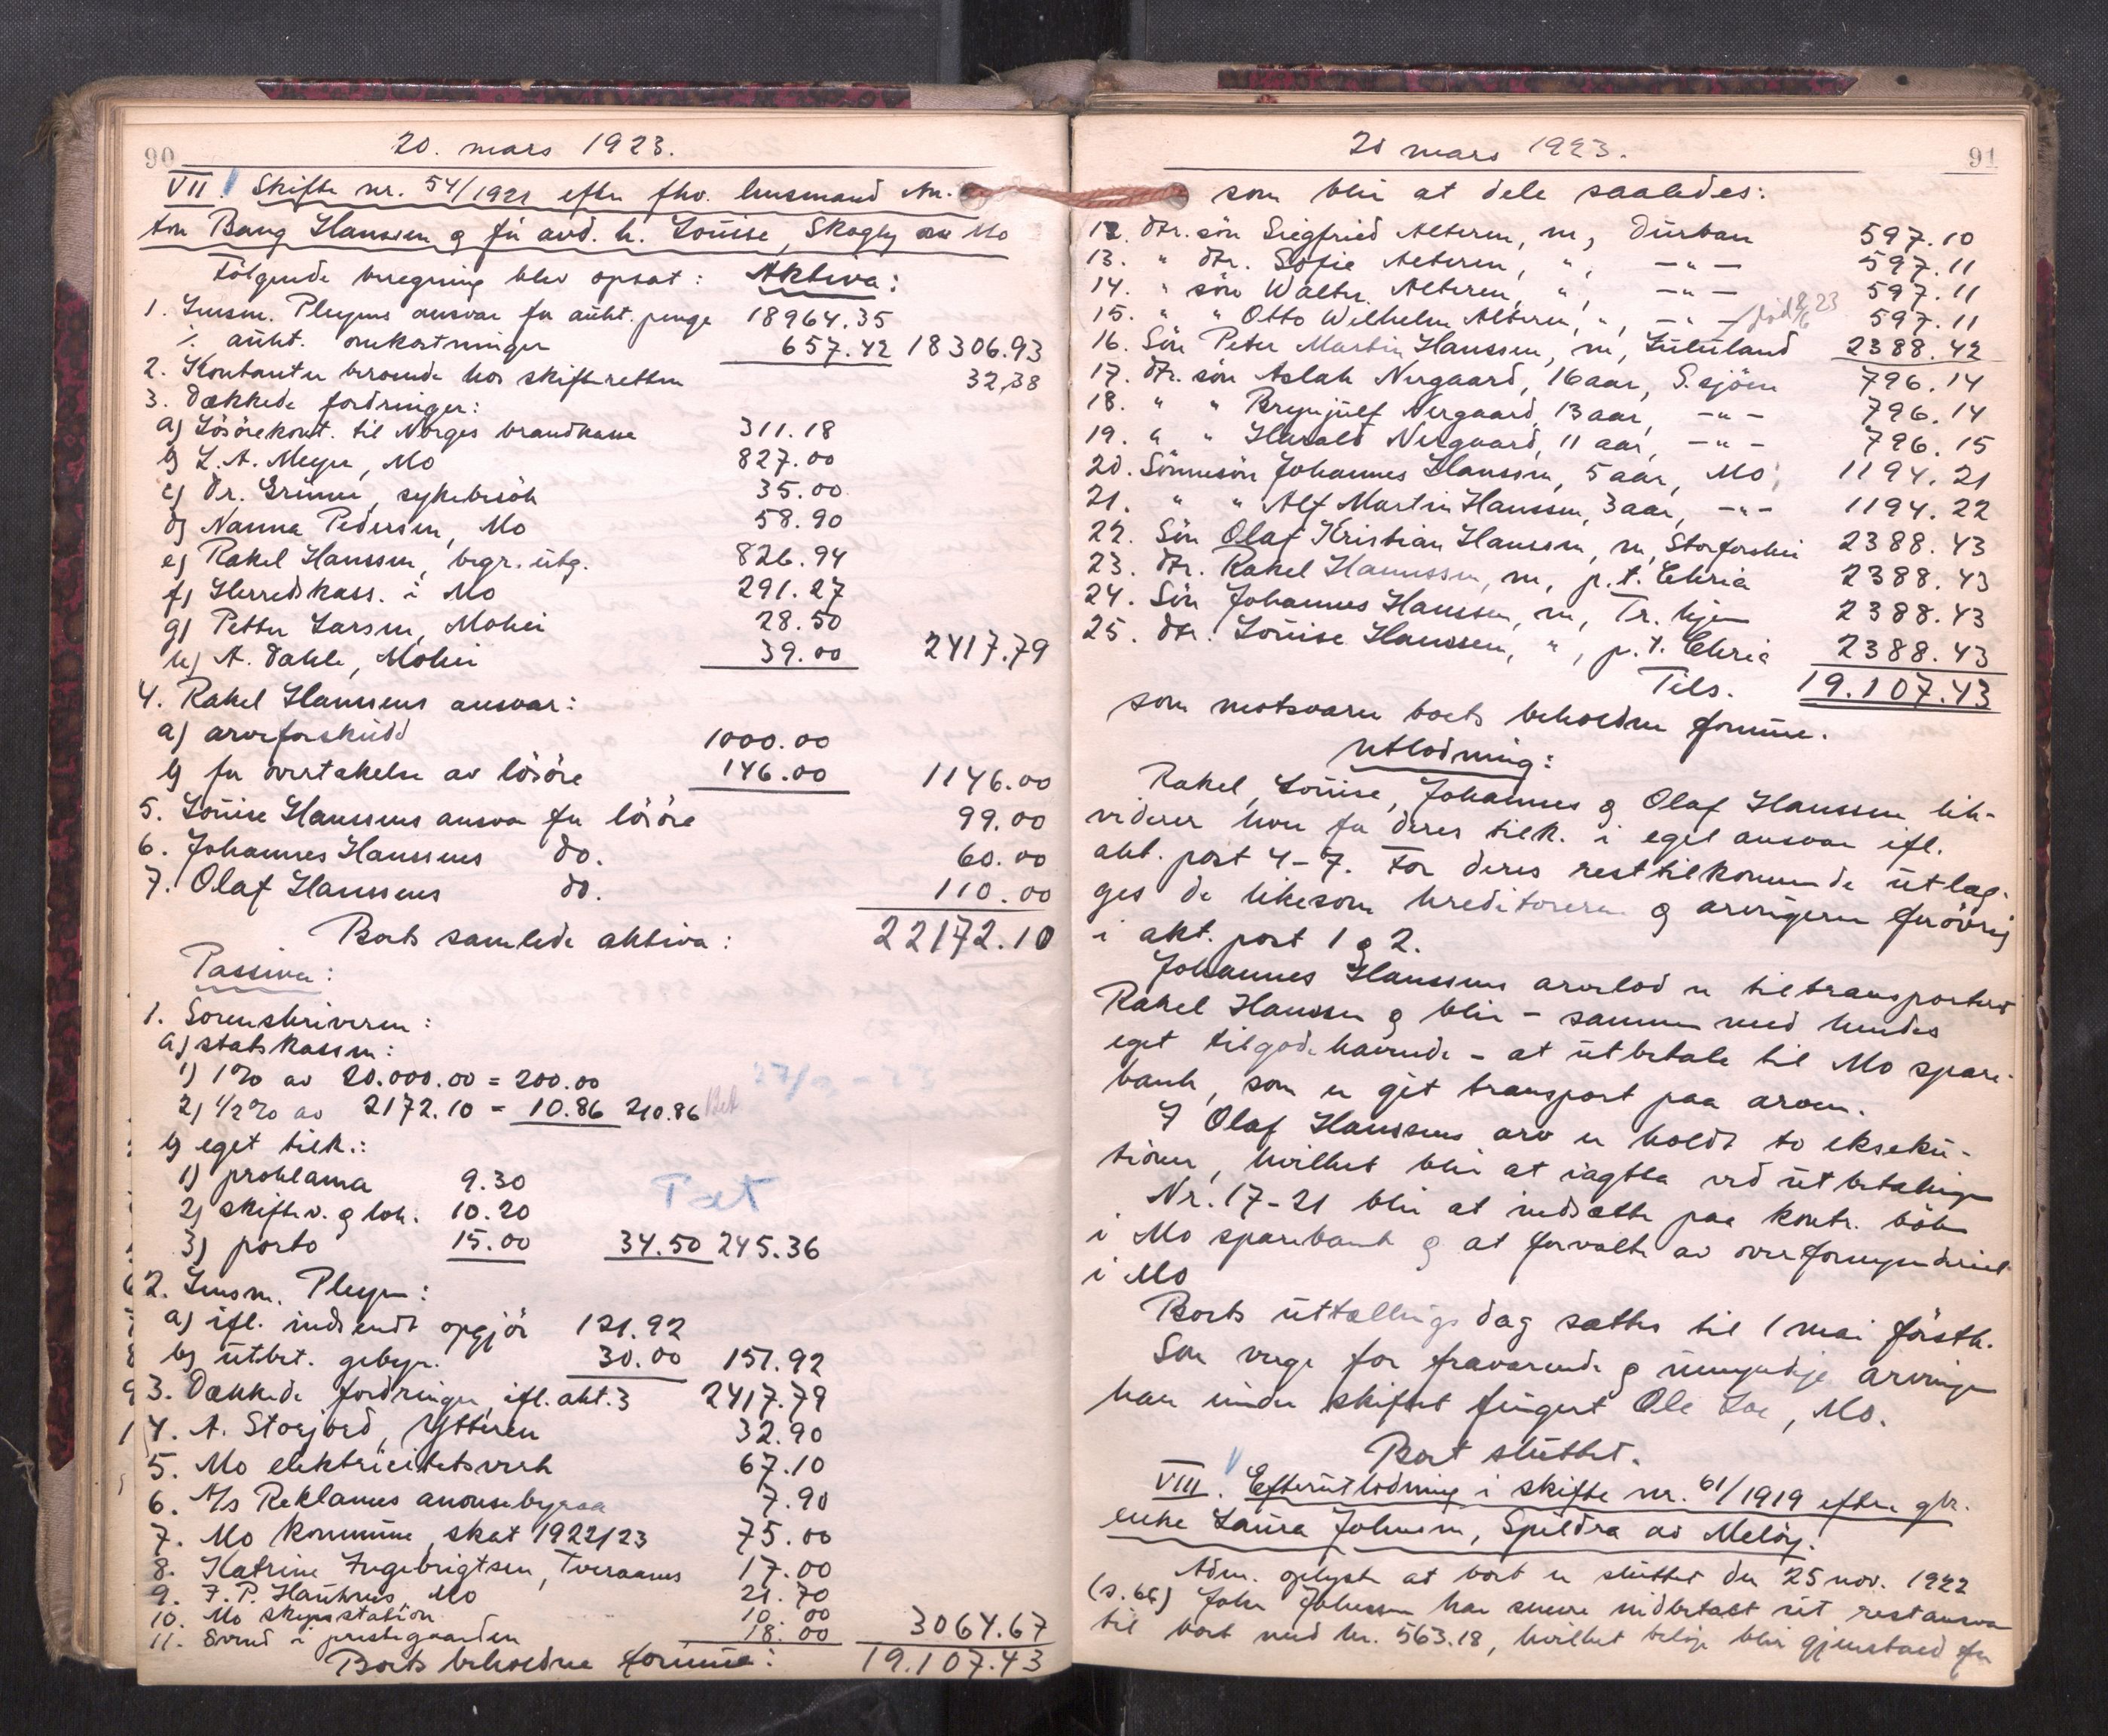 90
20. mars 1923.
VII. Skifte nr. 54/1921 efter fhv. husmand An-
ton Bang Hanssen & før avd. h. Louise, Skogly av Mo
Følgende beregning blev opsat: Aktiva:
1. Lensm. Pleyms ansvar for aukt. penge 18964.35
÷ aukt. omkostninger 657.42 18306.93
2. Kontanter beroende hos skifteretten 32,38
3. Dækkede fordringer:
a) Løsørekont. til Norges brandkasse 311.18
b) L. A. Meyer, Mo 827.00
c) Dr. Grüner, sykebesøk 35.00
d) Nanna Pedersen, Mo 58.90
e) Rakel Hanssen, begr. utg. 826.94
f) Herredskass. i Mo 291.27
g) Petter Larsen, Mohei 28.50
h) A. Dahle, Mohei 39.00 2417.79
4. Rakel Hanssens ansvar:
a) arveforskudd 1000.00
b) for overtakelse av løsøre 146.00 1146.00
5. Louise Hanssens ansvar for løsøre 99.00
6. Johannes Hanssens do. 60.00
7. Olaf Hanssens do. 110.00
Boets samlede aktiva: 22172.10
Passiva:
1. Sorenskriveren:
a) statskassen:
1) 1% av 20.000.00 = 200.00
2) 1/2% av 2172.10 = 10.86 210.86 Bet
b) eget tilk.:
1) proklama 9.30
2) skiftev. & lok. 10.20
3) porto 15.00 34.50 245.36
Bet
2. Lensm. Pleym:
a) ifl. indsendt opgjør 121.92
b) utbet. gebyr. 30.00 151.92
3. Dækkede fordringer ifl. akt. 3 2417.79
4. A. Storjord, Ytteren 32.90
5. Mo elektricitetsverk 67.10
6. A/s Reklames anonsebyraa 7.90
7. Mo kommune, skat 1922/23 75.00
8. Katrine Ingebrigtsen, Tveraanes 17.00
9. F. P. Hauknes, Mo 21.70
10. Mo skysstation 10.00
11. Svend i prestegaarden 18.00 3064.67
Boets beholdne formue: 19.107.43
20 mars 1923.
91
som blir at dele saaledes:
12. dtr. søn Siegfried Alteren, m, Durban 597.10
13. " dtr. Sofie Alteren, ", —"— 597.11
14. " søn Walter Alteren, ", —"— 597.11
15. " " Otto Wilhelm Alteren, ", —"— 597.11
16. Søn Peter Martin Hanssen, m, Zululand 2388.42
17. dtr. søn Aslak Nergaard, 16 aar, S.sjøen 796.14
18. " " Brynjulf Nergaard, 13 aar, —"— 796.14
19. " " Harald Nergaard, 11 aar, —"— 796.15
20. Sønnesøn Johannes Hanssen, 5 aar, Mo, 1194.21
21. " " Alf Martin Hanssen, 3 aar, —"— 1194.22
22. Søn Olaf Kristian Hanssen, m, Storforshei 2388.43
23. dtr. Rakel Hanssen, m, p.t. Chria 2388.43
24. Søn Johannes Hanssen, m, Tr. hjem 2388.43
25. dtr. Louise Hanssen, ", p.t. Chria 2388.43
Tils. 19.107.43
som motsvarer boets beholdne formue.
Utlodning:
Rakel, Louise, Johannes & Olaf Hanssen lik-
viderer hver for deres tilk. i eget ansvar ifl.
akt. post 4-7. For deres resttilkommende utlæg-
ges de likesom kreditorerne & arvingerne forøvrig
i akt. post 1 & 2.
Johannes Hanssens arvelod er tiltransportert
Rakel Hanssen & blir - sammen med hendes
eget tilgodehavende - at utbetale til Mo spare-
bank, som er git transport paa arven.
I Olaf Hanssens arv er holdt to ekseku-
tioner, hvilket blir at iagtta ved utbetalingen
Nr. 17-21 blir at indsætte paa kontr. bøker
i Mo sparebank & at forvalte av overformynderiet
i Mo
Boets uttællingsdag sættes til 1 mai førstk.
Som verge for fraværende & umyndige arvinger
har under skiftet fungert Ole Loe, Mo.
Boet sluttet.
VIII. Efterutlodning i skifte nr. 61/1919 efter gbr.
enke Laura Johnsen, Spildra av Meløy.
Adm. oplyste at boet er sluttet den 25 nov. 1922
(s. 66) John Johnsen har senere indbetalt sit restansvar
til boet med kr. 563.18, hvilket beløp blir gjenstand for